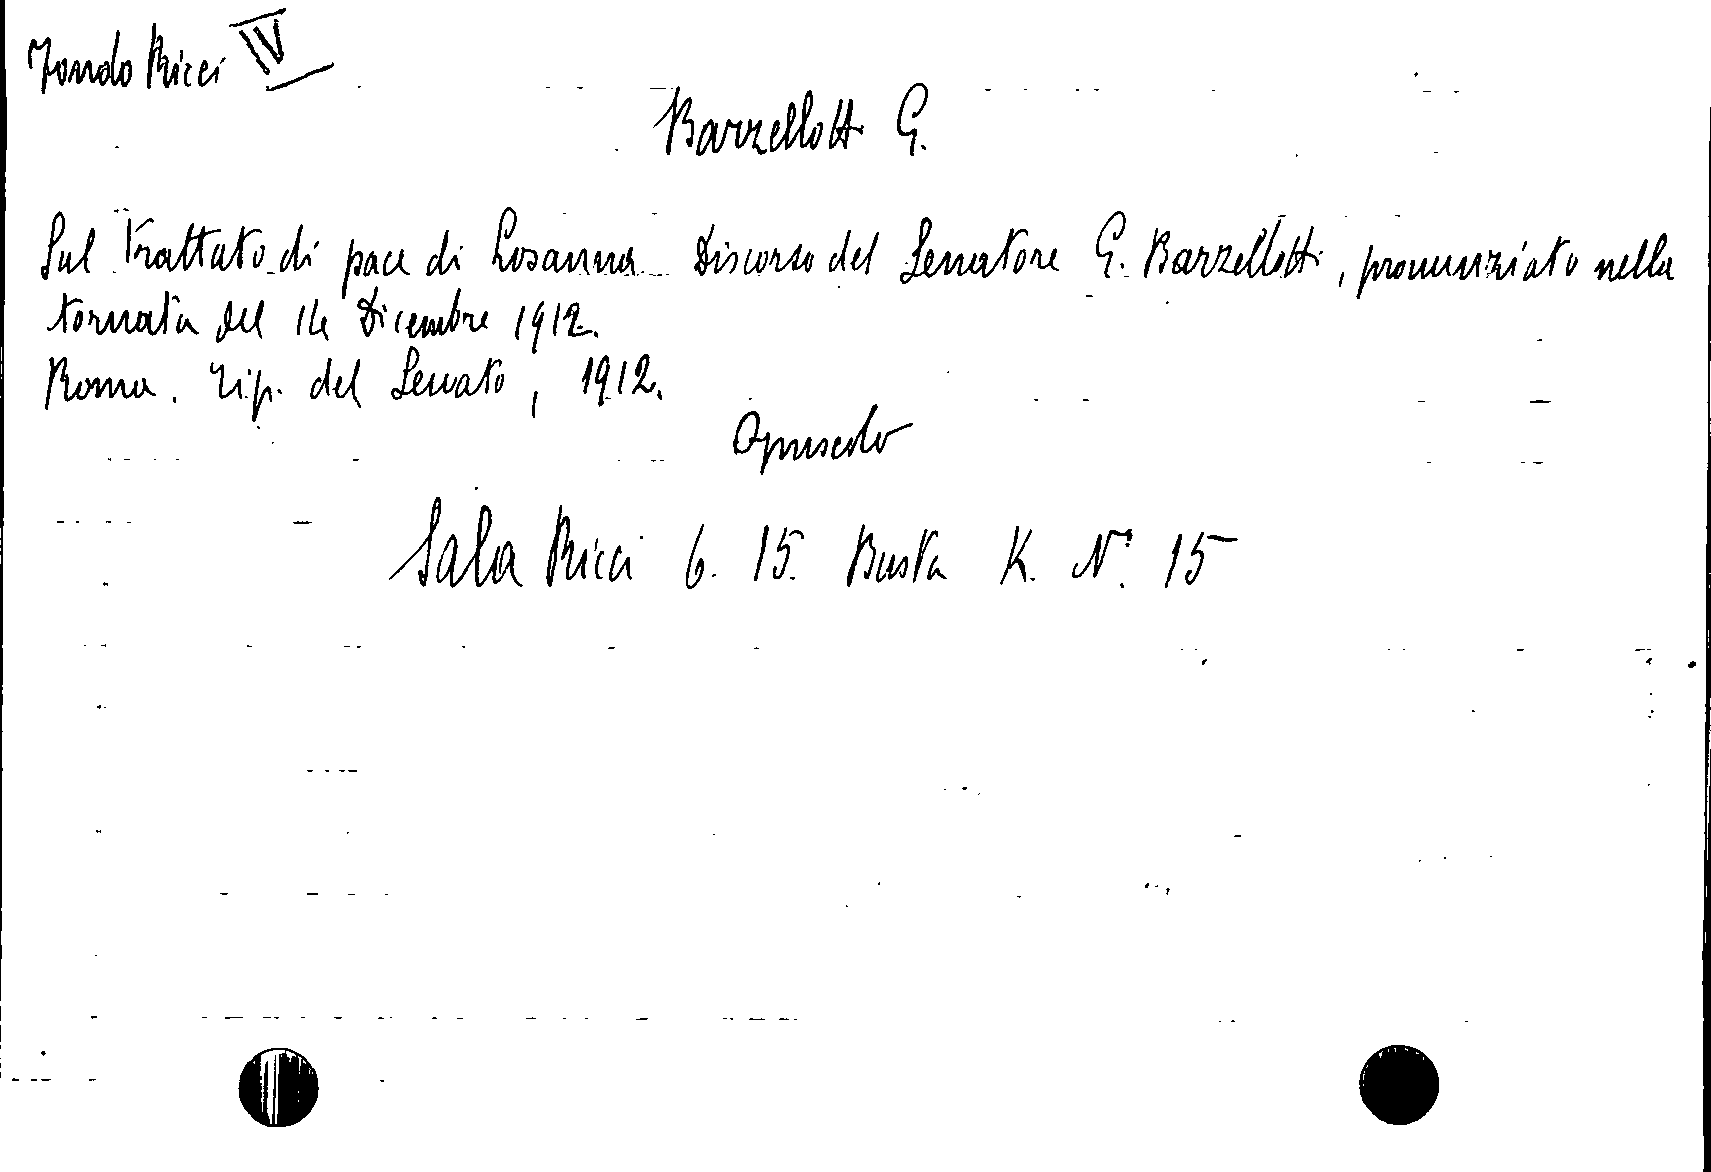 Fondo Ricci IV
Barzellotti G.
Sul Trattato di pace di Losanna Discorso del Senatore G. Barzellotti, pronunziato nella
tornata del 14 Dicembre 1912.
Roma. Tip. del Senato, 1912.
Opuscolo
Sala Ricci 6. 15. Busta K. N.° 15